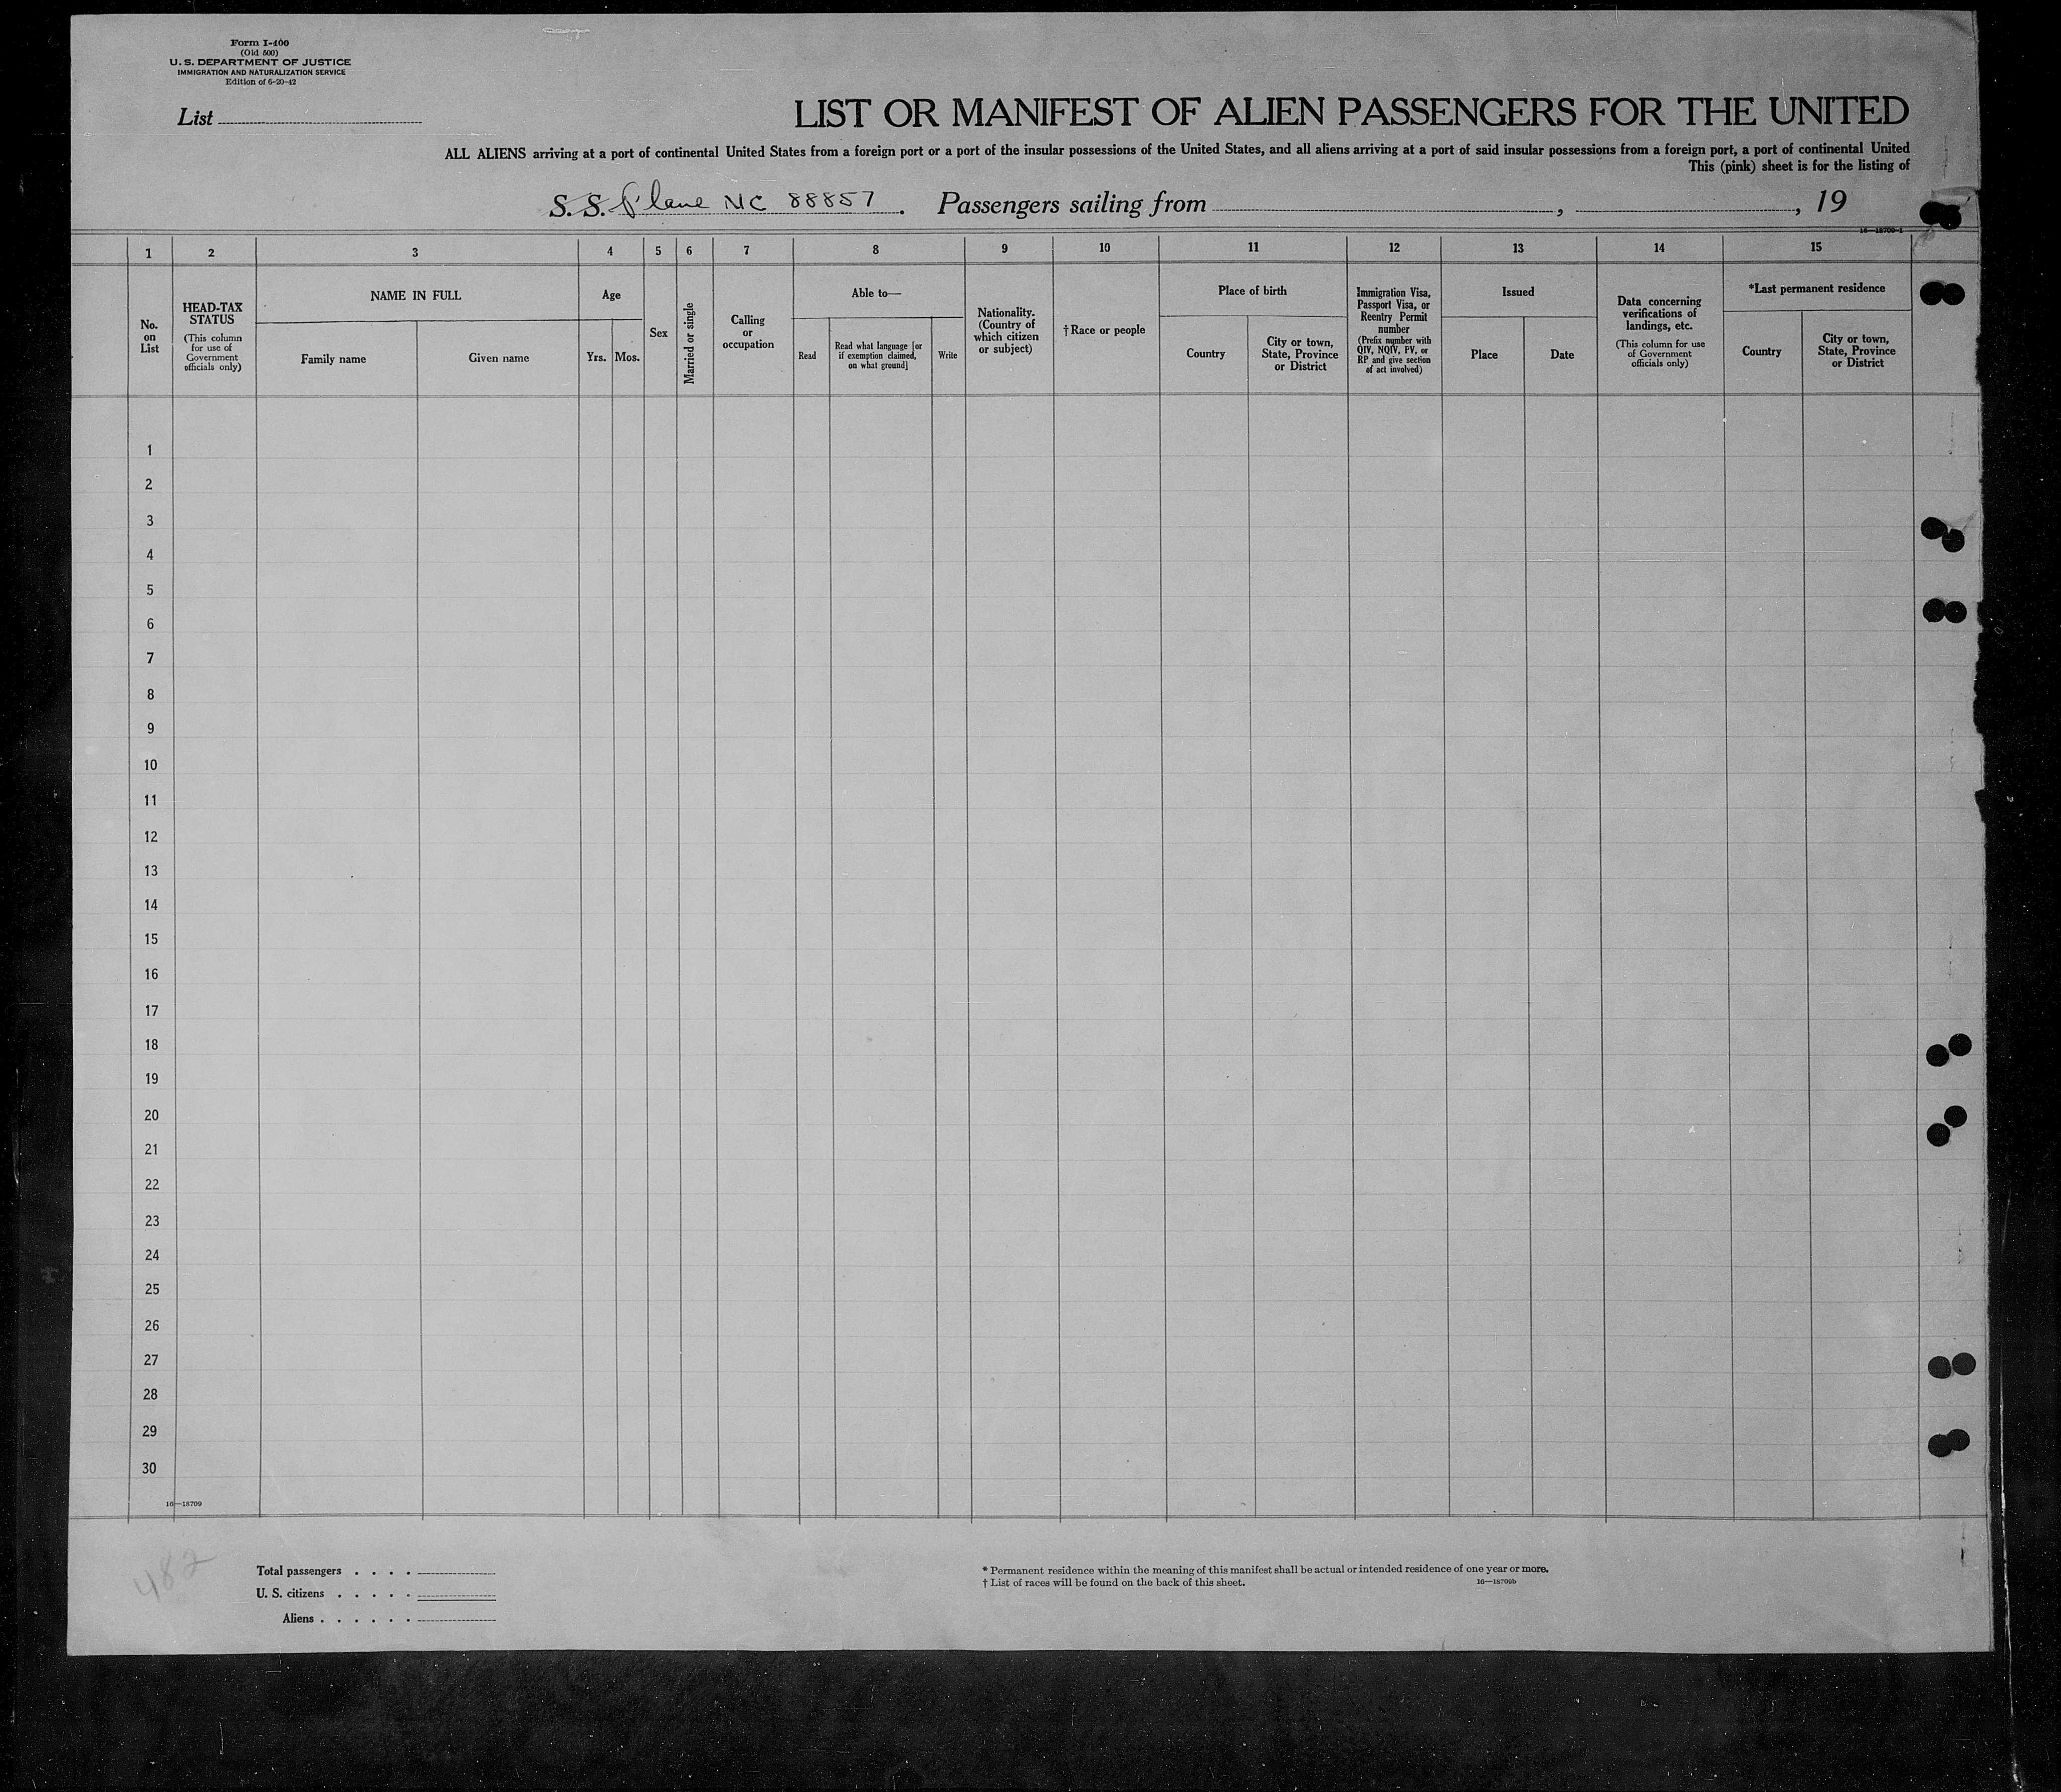 Form I-400
(Old 500)
U. S. DEPARTMENT OF JUSTICE
IMMIGRATION AND NATURALIZATION SERVICE
Edition of 6-20-42
List
LIST OR MANIFEST OF ALIEN PASSENGERS FOR THE UNITED
ALL ALIENS arriving at a port of continental United States from a foreign port or a port of the insular possessions of the United States, and all aliens arriving at a port of said insular possessions from a foreign port, a port of continental United
This (pink) sheet is for the listing of
S. S. Plane NC 88857. Passengers sailing from , , 19
16—18709-1
1 2 3 4 5 6 7 8 9 10 11 12 13 14 15
No.
on
List
HEAD-TAX
STATUS
(This column
for use of
Government
officials only)
NAME IN FULL
Family name
Given name
Age
Yrs.
Mos.
Sex
Married or single
Calling
or
occupation
Able to—
Read
Read what language [or
if exemption claimed,
on what ground]
Write
Nationality.
(Country of
which citizen
or subject)
†Race or people
Place of birth
Country
City or town,
State, Province
or District
Immigration Visa,
Passport Visa, or
Reentry Permit
number
(Prefix number with
QIV, NQIV, PV, or
RP and give section
of act involved)
Issued
Place
Date
Data concerning
verifications of
landings, etc.
(This column for use
of Government
officials only)
*Last permanent residence
Country
City or town,
State, Province
or District
1
2
3
4
5
6
7
8
9
10
11
12
13
14
15
16
17
18
19
20
21
22
23
24
25
26
27
28
29
30
16—18709
482
Total passengers . . . .
U. S. citizens . . . . .
Aliens . . . . . .
* Permanent residence within the meaning of this manifest shall be actual or intended residence of one year or more.
† List of races will be found on the back of this sheet.
16—18709b